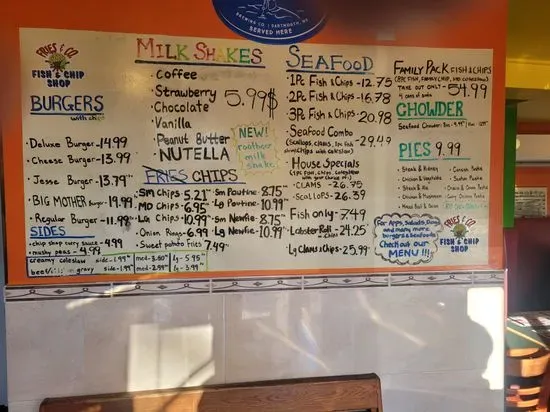 BREWING CO. DARTMOUTH, NS
SERVED HERE
FRIES & CO.
FISH & CHIP
SHOP
BURGERS
with chips
Deluxe Burger - 14.99
Cheese Burger - 13.99
Jesse Burger - 13.79
BIG MOTHER Burger - 19.99
Regular Burger - 11.99
SIDES
chip shop curry sauce - 4.99
mushy peas - 4.99
creamy coleslaw side - 1.99 med - 3.80 lg - 5.95
beef gravy side - 1.99 med - 2.99 lg - 3.99
MILK SHAKES
Coffee
Strawberry
Chocolate
5.99$
Vanilla
Peanut Butter
NUTELLA
NEW!
rootbeer
milk
shake
FRIES CHIPS
Sm Chips 5.21
MD Chips 6.95
LG Chips 10.99
Onion Rings - 6.99
Sweet potato Fries 7.49
Sm Poutine - 8.75
Lg Poutine - 10.99
Sm Newfie - 8.75
Lg Newfie - 10.99
SEAFOOD
1Pc Fish & Chips - 12.75
2Pc Fish & Chips - 16.78
3Pc Fish & Chips - 20.98
Seafood Combo
29.49
House Specials
CLAMS - 26.75
SCALLOPS - 26.39
Fish only - 7.49
Lobster Roll 24.25
Lg Clams & Chips - 25.99
FAMILY PACK FISH & CHIPS
TAKE OUT ONLY - 54.99
4 cans of soda
CHOWDER
Seafood Chowder
PIES 9.99
Steak & Kidney
Chicken & Vegetable
Steak & Ale
Chicken & Mushroom
For Apps, Salads, Dogs
and many more
burgers & seafoods
Check out our
MENU !!!
FRIES & CO.
FISH & CHIP
SHOP